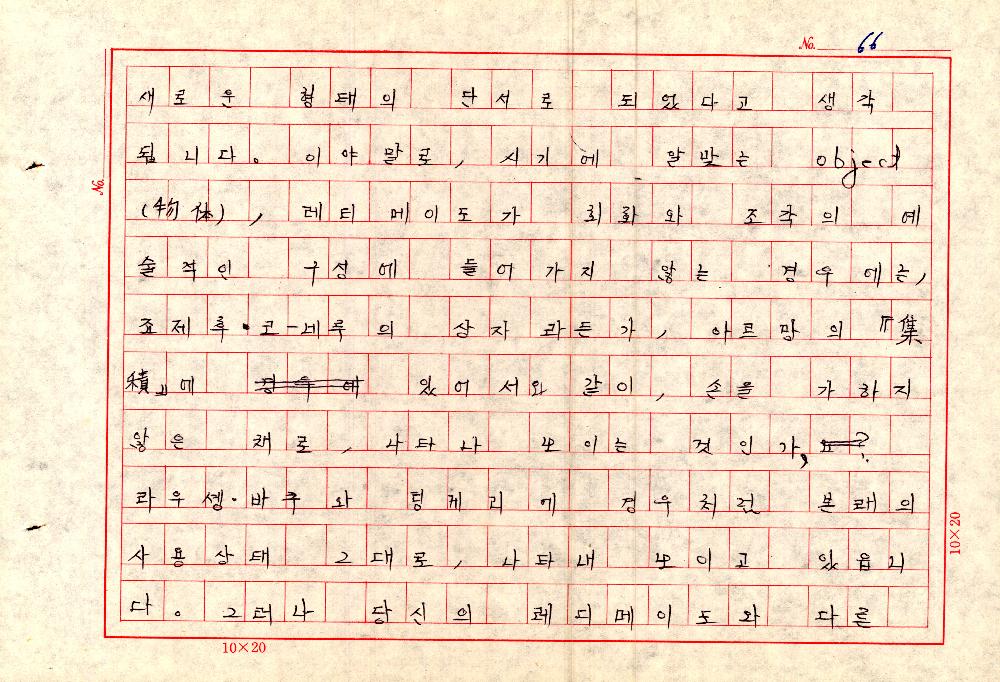 No. 66
새로운 형태의 단서로 되었다고 생각
됩니다。 이야말로, 시기에 알맞는 object
(物体), 레티메이드가 회화와 조각의 예
술적인 구성에 들어가지 않는 경우에는,
죠제후·코-네루의 상자라든가, 아르망의 『集
積』에 경우에 있어서와 같이, 손을 가하지
않은 채로, 나타나 보이는 것인가,요?
라우솅·바쿠와 팅게리에 경우처런 본래의
사용상태 그대로, 나타내 보이고 있읍니
다。 그러나 당신의 레디메이도와 다른
No.
10×20
10×20